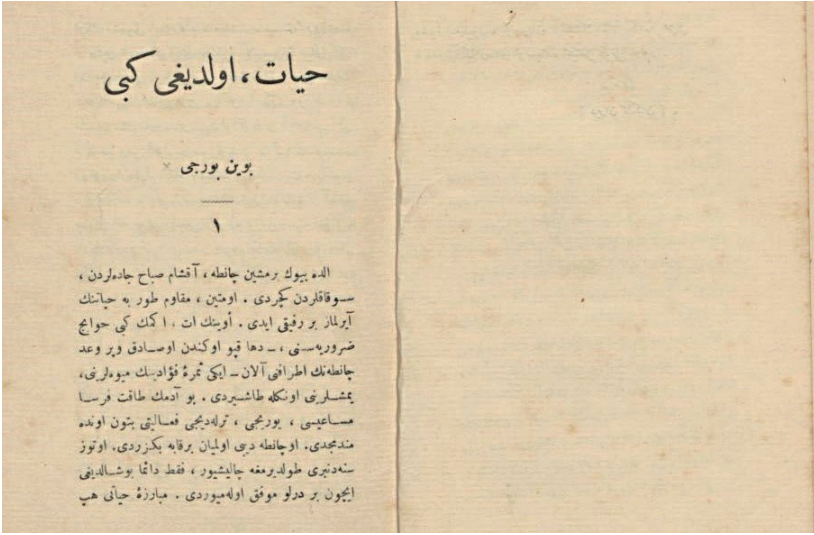 حیات ، اولدیغی کبی
بوین بورجی
۱
الده بیوك برمشین چانطه ، آقشام صباح جاده‌لردن ،
سوقاقلردن کچردی . اومتین ، مقاوم طور به حیاتنك
آیرلماز بر رفیقی ایدی . أوینك ات ، اكمك کبی حوایج
ضروریه‌سنی ، ــ دها قپو اوکندن اوصادق ویر وعد
چانطه‌نك اطرافنی آلان ــ ایکی ثمرهٔ فؤادینك میوه‌لرینی،
یمشلرینی اونکله طاشیردی . بو آدمك طاقت فرسا
مساعیسی ، یوریجی ، ترله‌دیجی فعالیتی بتون اونده
مندمجدی. اوچانطه دیبی اولمیان برقابه بکزردی. اوتوز
سنه‌دنبری طولدیرمغه چالیشیور ، فقط دائما بوشالدیغی
ایچون بر درلو موفق اوله‌میوردی . مبارزهٔ حیاتی هپ